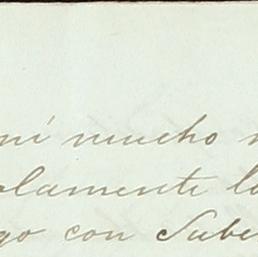 mi mucho
lamente
go con Sube